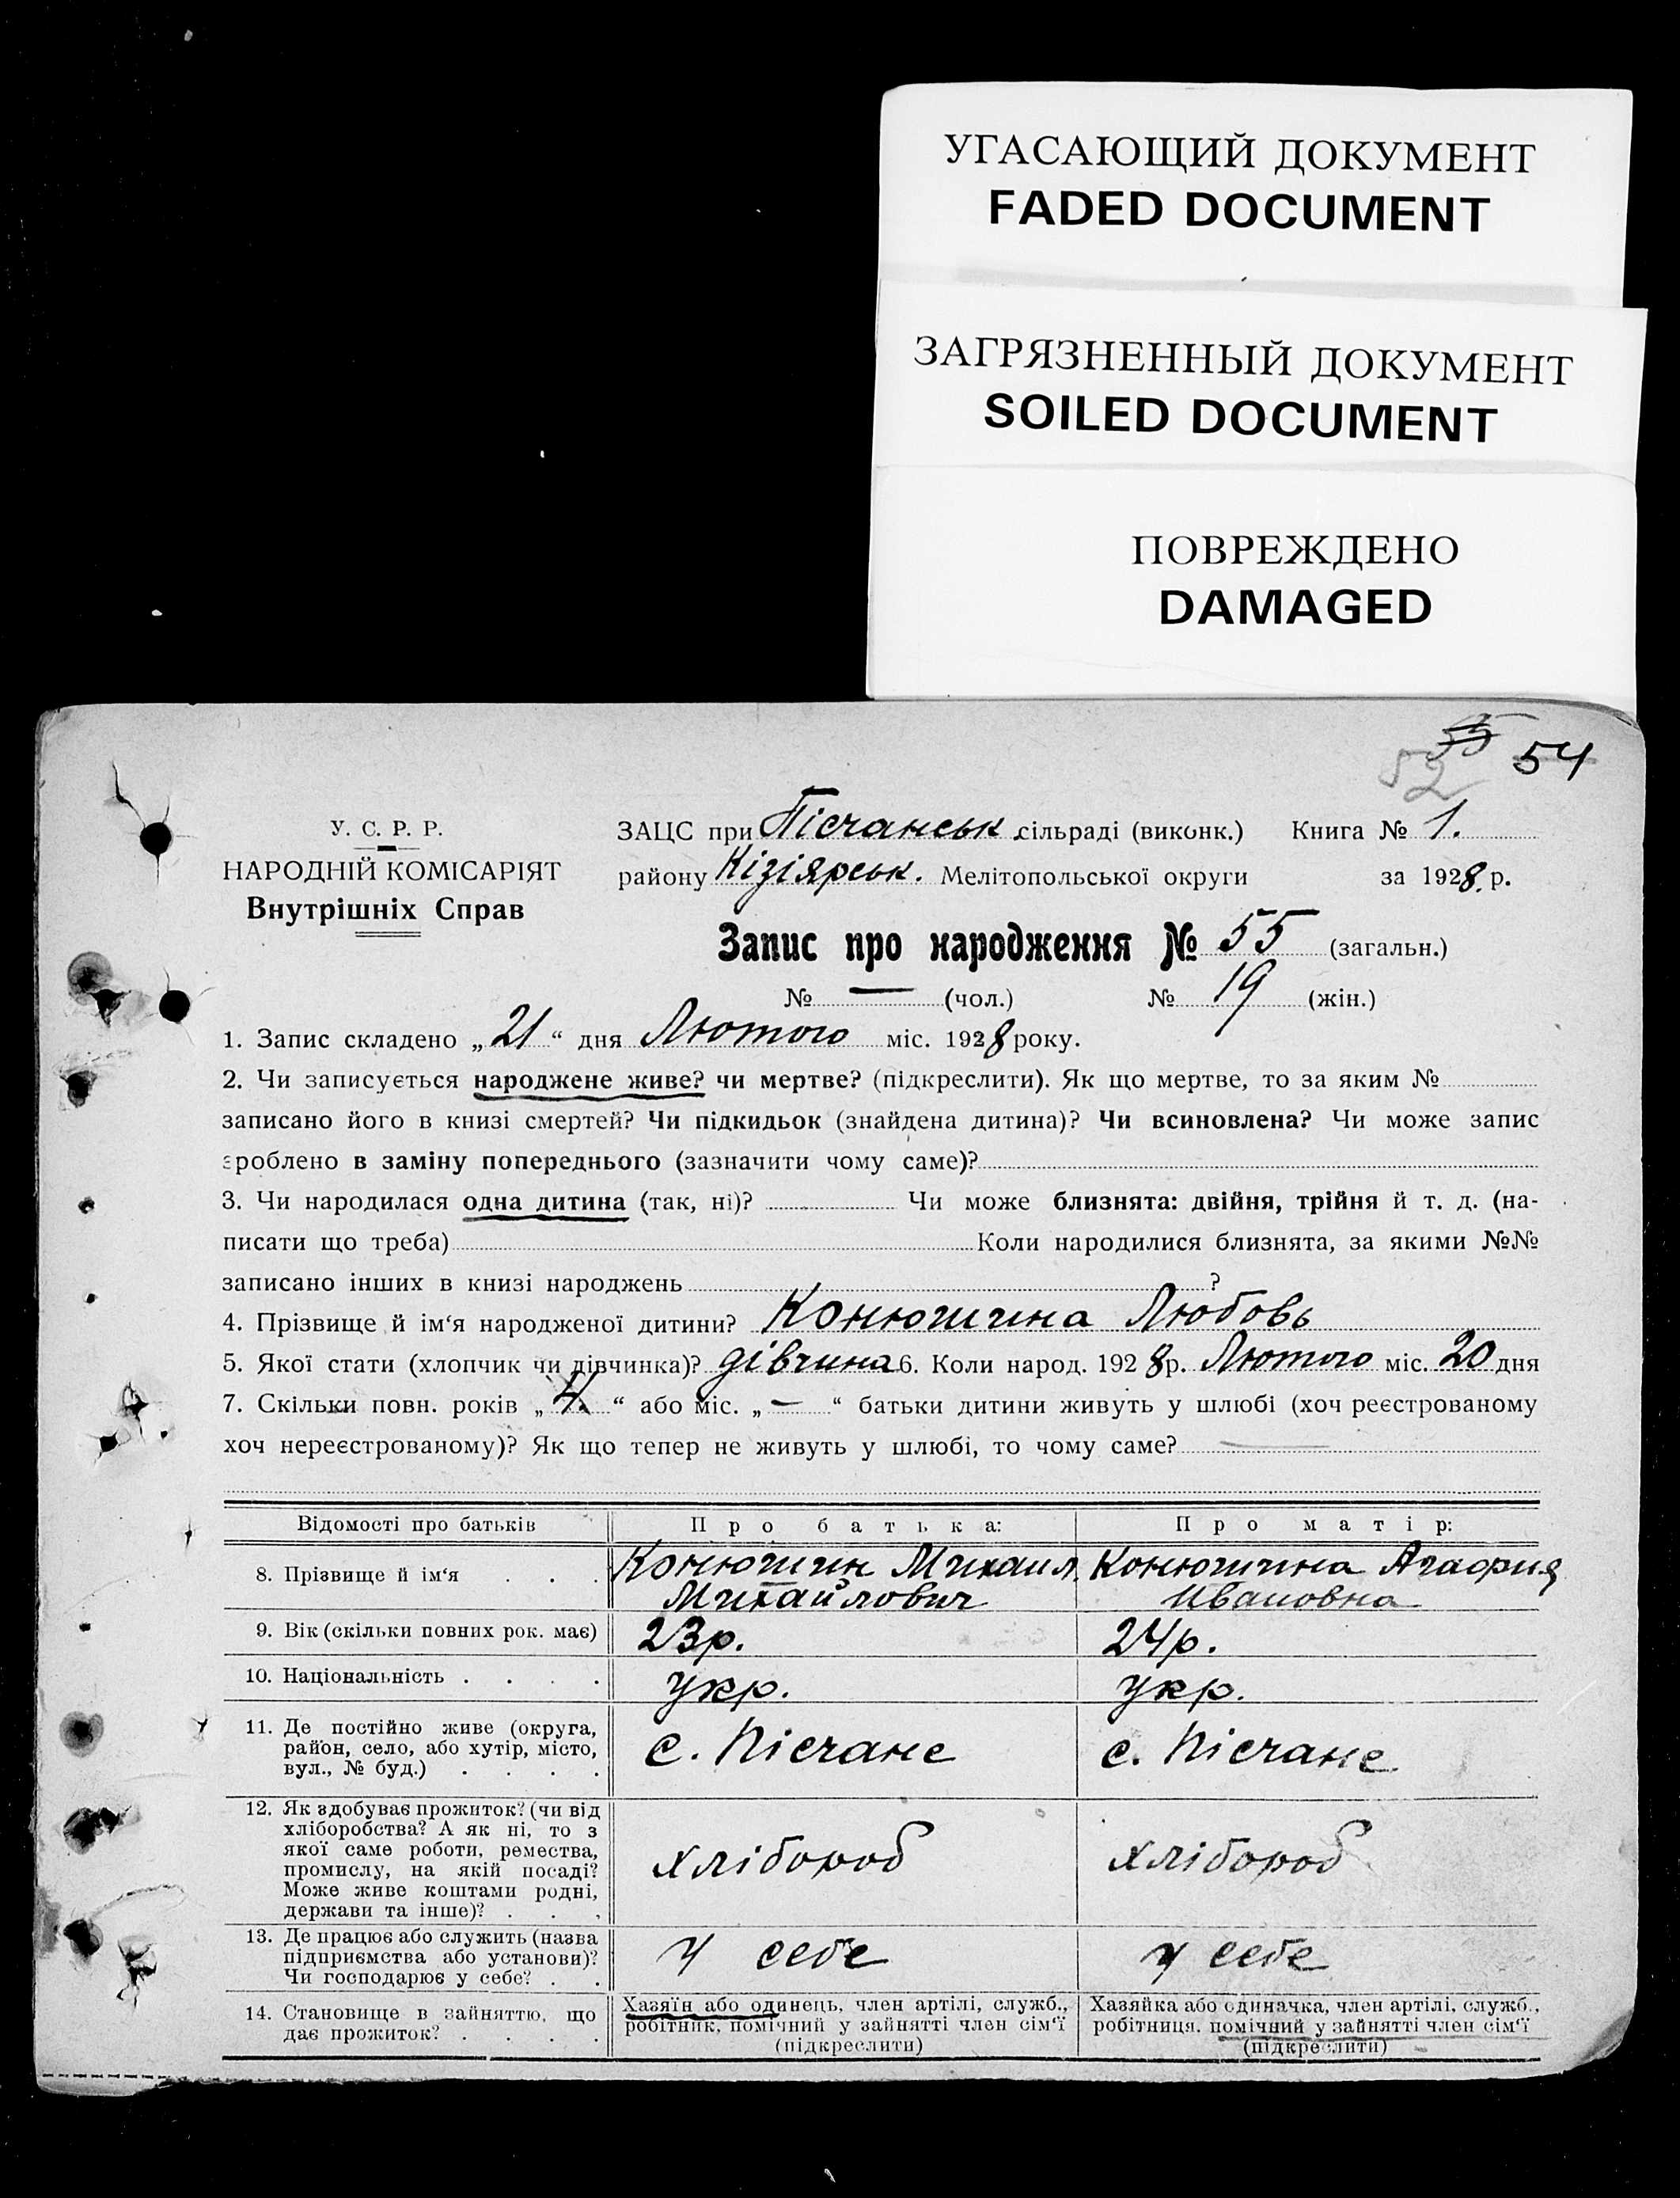 УГАСАЮЩИЙ ДОКУМЕНТ
FADED DOCUMENT
ЗАГРЯЗНЕННЫЙ ДОКУМЕНТ
SOILED DOCUMENT
ПОВРЕЖДЕНО
DAMAGED
55 54
52
У. С. Р. Р.
НАРОДНІЙ КОМІСАРІЯТ
Внутрішніх Справ
ЗАЦС при Пісчанськ сільраді (виконк.) Книга № 1.
району Кізіярськ. Мелітопольської округи за 1928. р.
Запис про народження № 55 (загальн.)
№ — (чол.) № 19 (жін.)
1. Запис складено „21“ дня Лютого міс. 1928 року.
2. Чи записується народжене живе? чи мертве? (підкреслити). Як що мертве, то за яким №
записано його в книзі смертей? Чи підкидьок (знайдена дитина)? Чи всиновлена? Чи може запис
зроблено в заміну попереднього (зазначити чому саме)?
3. Чи народилася одна дитина (так, ні)? Чи може близнята: двійня, трійня й т. д. (на-
писати що треба) Коли народилися близнята, за якими №№
записано інших в книзі народжень ?
4. Прізвище й ім‘я народженої дитини? Конюшина Любовь
5. Якої стати (хлопчик чи дівчинка)? дівчина 6. Коли народ. 1928 р. Лютого міс. 20 дня
7. Скільки повн. років „4.“ або міс. „—“ батьки дитини живуть у шлюбі (хоч реєстрованому
хоч нереєстрованому)? Як що тепер не живуть у шлюбі, то чому саме? —
Відомості про батьків Про батька: Про матір:
8. Прізвище й ім‘я . . . Конюшин Михаил Михайлович Конюшина Агафия Ивановна
9. Вік (скільки повних рок. має) 23р. 24р.
10. Національність . . . . укр. укр.
11. Де постійно живе (округа,
район, село, або хутір, місто,
вул., № буд.) . . . .
с. Пісчане с. Пісчане
12. Як здобуває прожиток? (чи від
хліборобства? А як ні, то з
якої саме роботи, ремества,
промислу, на якій посаді?
Може живе коштами родні,
держави та інше)? . . .
хлібороб хлібороб
13. Де працює або служить (назва
підприємства або установи)?
Чи господарює у себе? . .
у себе у себе
14. Становище в зайняттю, що
дає прожиток? . . . .
Хазяїн або одинець, член артілі, служб.,
робітник, помічний у зайнятті член сім‘ї
(підкреслити)
Хазяйка або одиначка, член артілі, служб.,
робітниця, помічний у зайнятті член сім‘ї
(підкреслити)